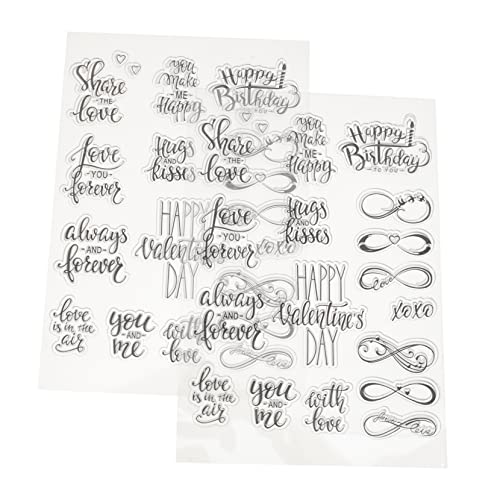 Share
THE
love
you
Make
ME
Happy
Happy
Birthday
TO YOU
love
YOU
forever
Hugs
AND
kisses
always
AND
forever
HAPPY
Valentine's
DAY
xoxo
love
is in the
air
you
AND
me
with
love
Share
THE
love
you
Make
ME
Happy
Happy
Birthday
TO YOU
love
YOU
forever
Hugs
AND
kisses
love
always
AND
forever
HAPPY
Valentine's
DAY
xoxo
love
is in the
air
you
AND
me
with
love
love